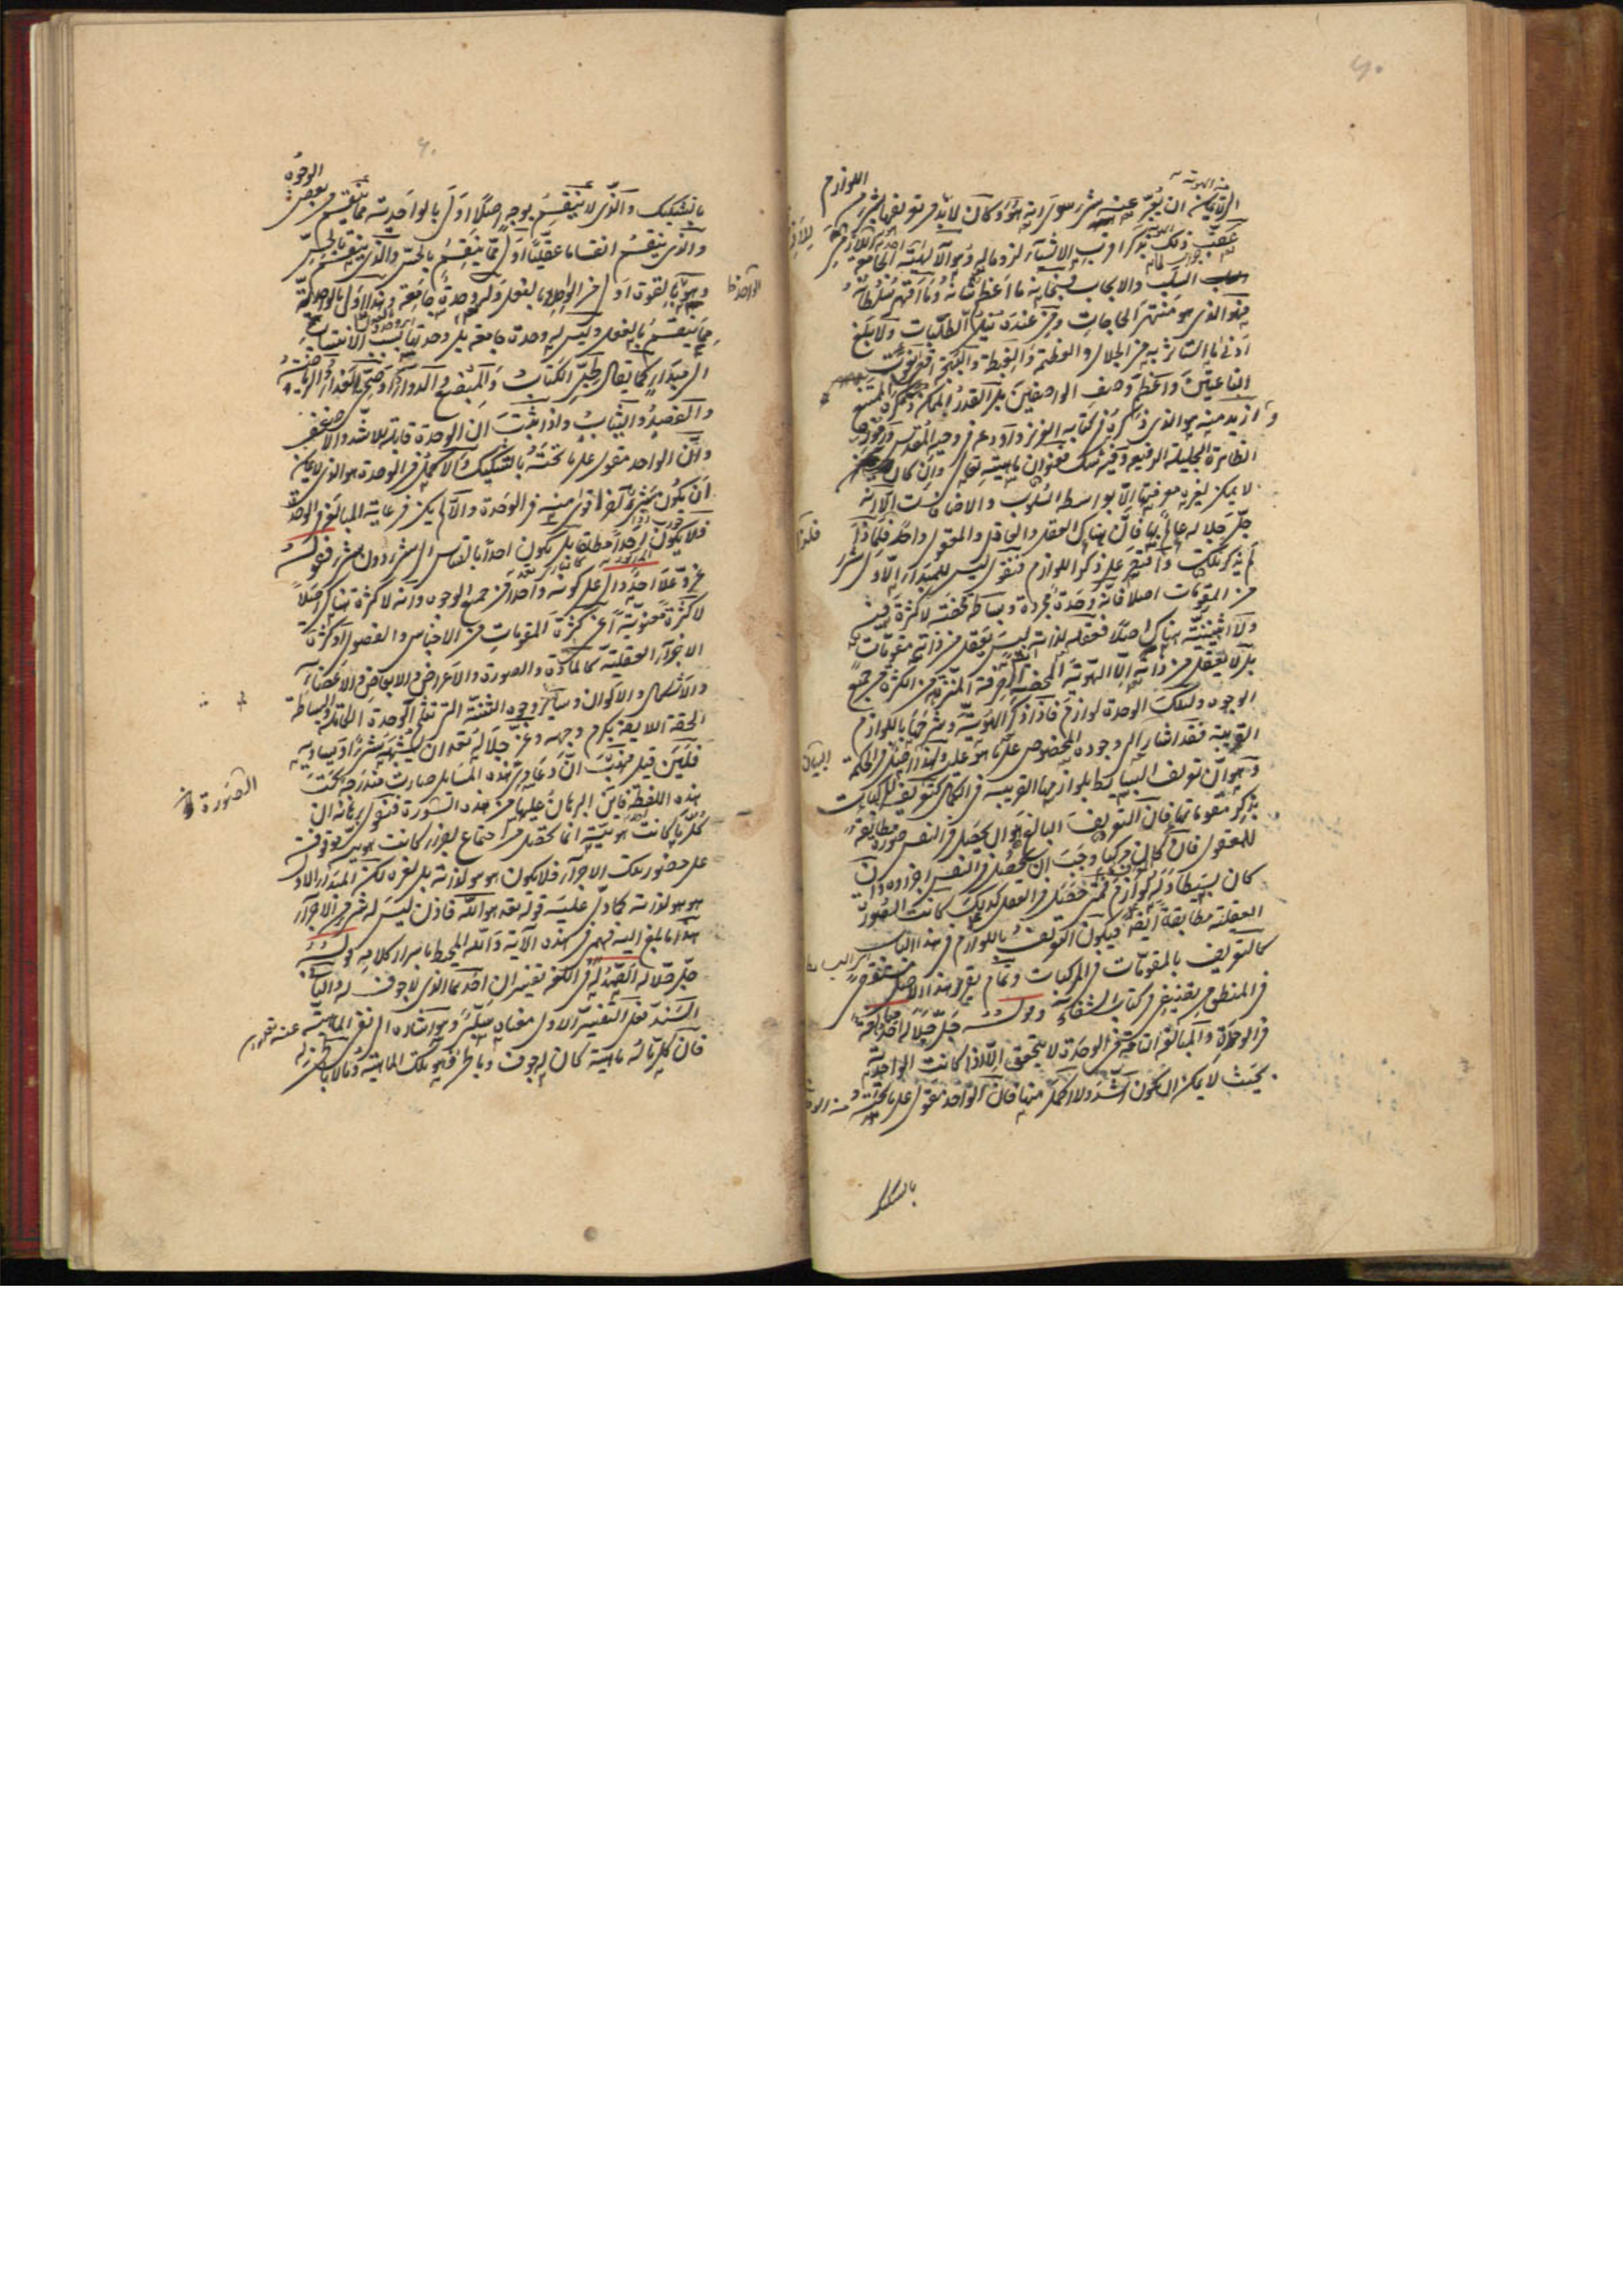 ٤٠
الهوية لا يمكن ان يعبر عنه بشرح سوى انه هو وكان لا بد من تعريفها بشئ من اللوازم
عقب ذلك بذكر اقرب الاشياء لزوما له وهو الالهية الجامعة
السلب والايجاب فسبحانه ما اعظم شانه وما اقهر سلطانه
فهو الذى هو منتهى الحاجات ومن عنده نيل الطلبات ولا يبلغ
ادنى ما استأثر به من الجلال والعظمة والغبطة والبهجة اقصى نعوت
الناعتين واعظم وصف الواصفين بل القدر الممكن ذكره الممتنع
ازيد منه هو الذى ذكره فى كتابه العزيز واودعه فى وحيه المقدس ورموزه
الظاهرة الجليلة الرفيعة وفيه شك فهو ان ماهيته تعالى وان كان
لا يمكن لغيره معرفتها الا بواسطة السلوب والاضافات الا انه
جل جلاله عالم بها فان هناك العقل والعاقل والمعقول واحد فلماذا
لم يذكر تلك واقتصر على ذكر اللوازم فنقول ليس للمبدأ الاول شئ
من المقومات اصلا فانه وحدة مجردة وبساطة محضة لا كثرة فيه
ولا اثنينية هناك اصلا فعقله لذاته ليس يعقل من ذاته مقومات
بل لا يعقل من ذاته الا الهوية المحضة الصرفة المنزهة عن الكثرة من جميع
الوجوه ولتلك الوحدة لوازم فاذا ذكر الهوية وشرحها باللوازم
القريبة فقد اشار الى وجوده المخصوص على ما هو عليه ولهذا اصل فى الحكمة
وهو ان تعريف البسائط بلوازمها القريبة فى الكمال كتعريف المركبات
بذكر مقوماتها فان التعريف البالغ هو ان يحصل فى النفس صورة مطابقة
للمعقول فان كان مركبا وجب ان يحصل فى النفس اجزاؤه وان
كان بسيطا وله لوازم فمتى حصل فى العقل كذلك كانت الصورة
العقلية مطابقة ايضا فيكون التعريف باللوازم فى هذا الباب
كالتعريف بالمقومات فى المركبات وتمام تقرير هذا الاصل
فى المنطق من تصنيفى كتاب الشفاء وقوله جل جلاله احد مبالغة
فى الوحدة والمبالغة التامة فى الوحدة لا يتحقق الا اذا كانت الواحدية
بحيث لا يمكن ان يكون اشد ولا اكمل منها فان الواحد مقول على ما تحته
بالتشكيك
٤٠
بالتشكيك والذى لا ينقسم بوجه اصلا اولى بالواحدية مما ينقسم من بعض الوجوه
والذى ينقسم انقساما عقليا اولى مما ينقسم بالحس والذى ينقسم بالحس
وهو بالقوة اولى من الواحد بالفعل وله وحدة جامعة وهذا اولى بالواحدية
مما ينقسم بالفعل وليس له وحدة جامعة بل وحدته بسبب الانتساب
الى مبدأ كما يقال طبى للكتاب والمبضع والدواء او صحى للغذاء والرياضة
والفصد والثياب واذا ثبت ان الوحدة قابلة للاشد والاضعف
وان الواحد مقول على ما تحته بالتشكيك والاكمل فى الوحدة هو الذى لا يمكن
ان يكون شئ آخر اقوى منه فى الوحدة والا لم يكن فى غاية المبالغة فى الوحدة
فلا يكون احدا مطلقا بل يكون احدا بالقياس الى شئ دون شئ فقوله
عز وعلا احد دال على كونه واحدا من جميع الوجوه وانه لا كثرة هناك اصلا
لا كثرة معنوية اعنى كثرة المقومات من الاجناس والفصول او كثرة
الاجزاء العقلية كالمادة والصورة والاعراض والابعاض والاعضاء
والاشكال والالوان وسائر وجوه التثنية التى تثلم الوحدة الكاملة والبساطة
الحقة اللائقة بكرم وجهه وعز جلاله تعالى ان يشبهه شئ او يساويه
فلئن قيل فهب ان دعاوى هذه المسائل صارت مندرجة تحت
هذه اللفظة فاين البرهان عليها من هذه السورة فنقول برهانه ان
كل ما كانت هويته انما تحصل من اجتماع اجزاء كانت هويته موقوفة
على حضور تلك الاجزاء فلا يكون هو هو لذاته بل لغيره لكن المبدأ الاول
هو هو لذاته كما دل عليه قوله هو الله فاذن ليس له شئ من الاجزاء
هذا ما بلغ اليه فهمى فى هذه الآية والله المحيط باسرار كلامه قوله
جل جلاله الصمد له فى اللغة تفسيران احدهما الذى لا جوف له والثانى
السند فعلى التفسير الاول معناه سلبى وهو اشارة الى نفى الماهية
فان كل ما له ماهية كان له جوف وباطن فهو تلك الماهية وما لا باطن له
الصورة